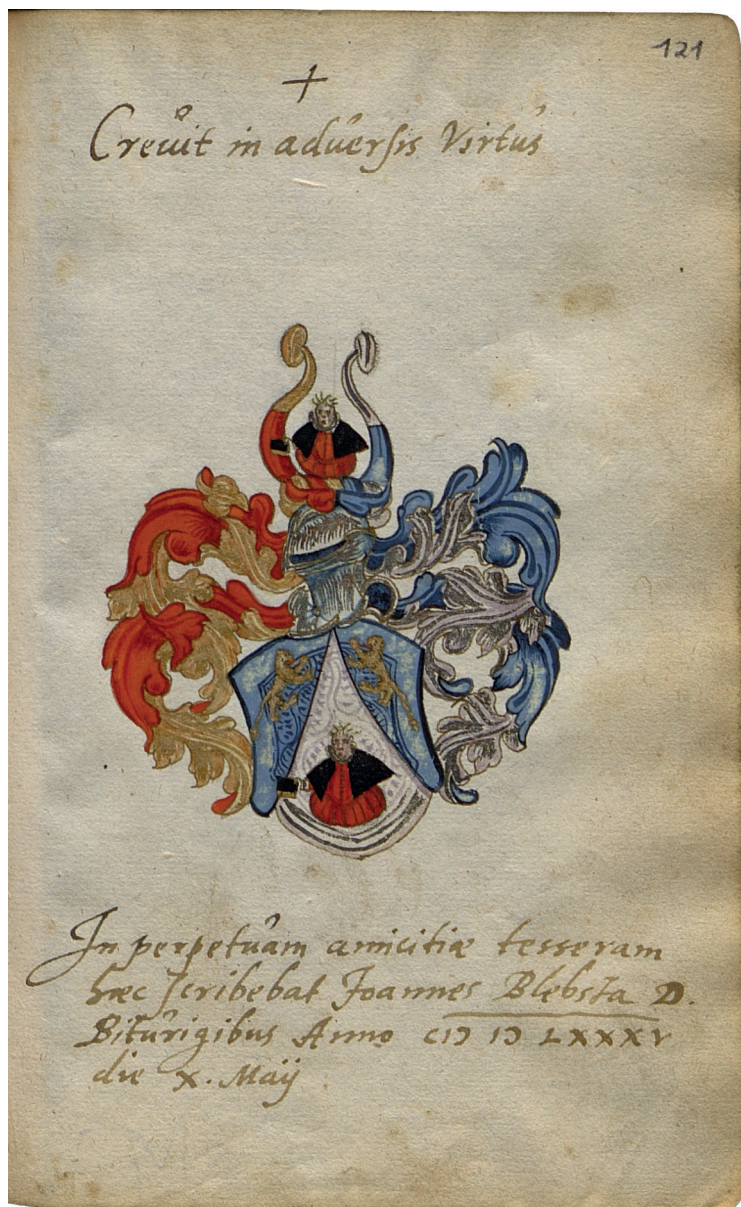 121
+
Crevit in adversis Virtus
In perpetuam amicitiæ tesseram
hæc scribebat Joannes Blebsta D.
Biturigibus Anno CIƆ IƆ LXXXV
die X. Maij